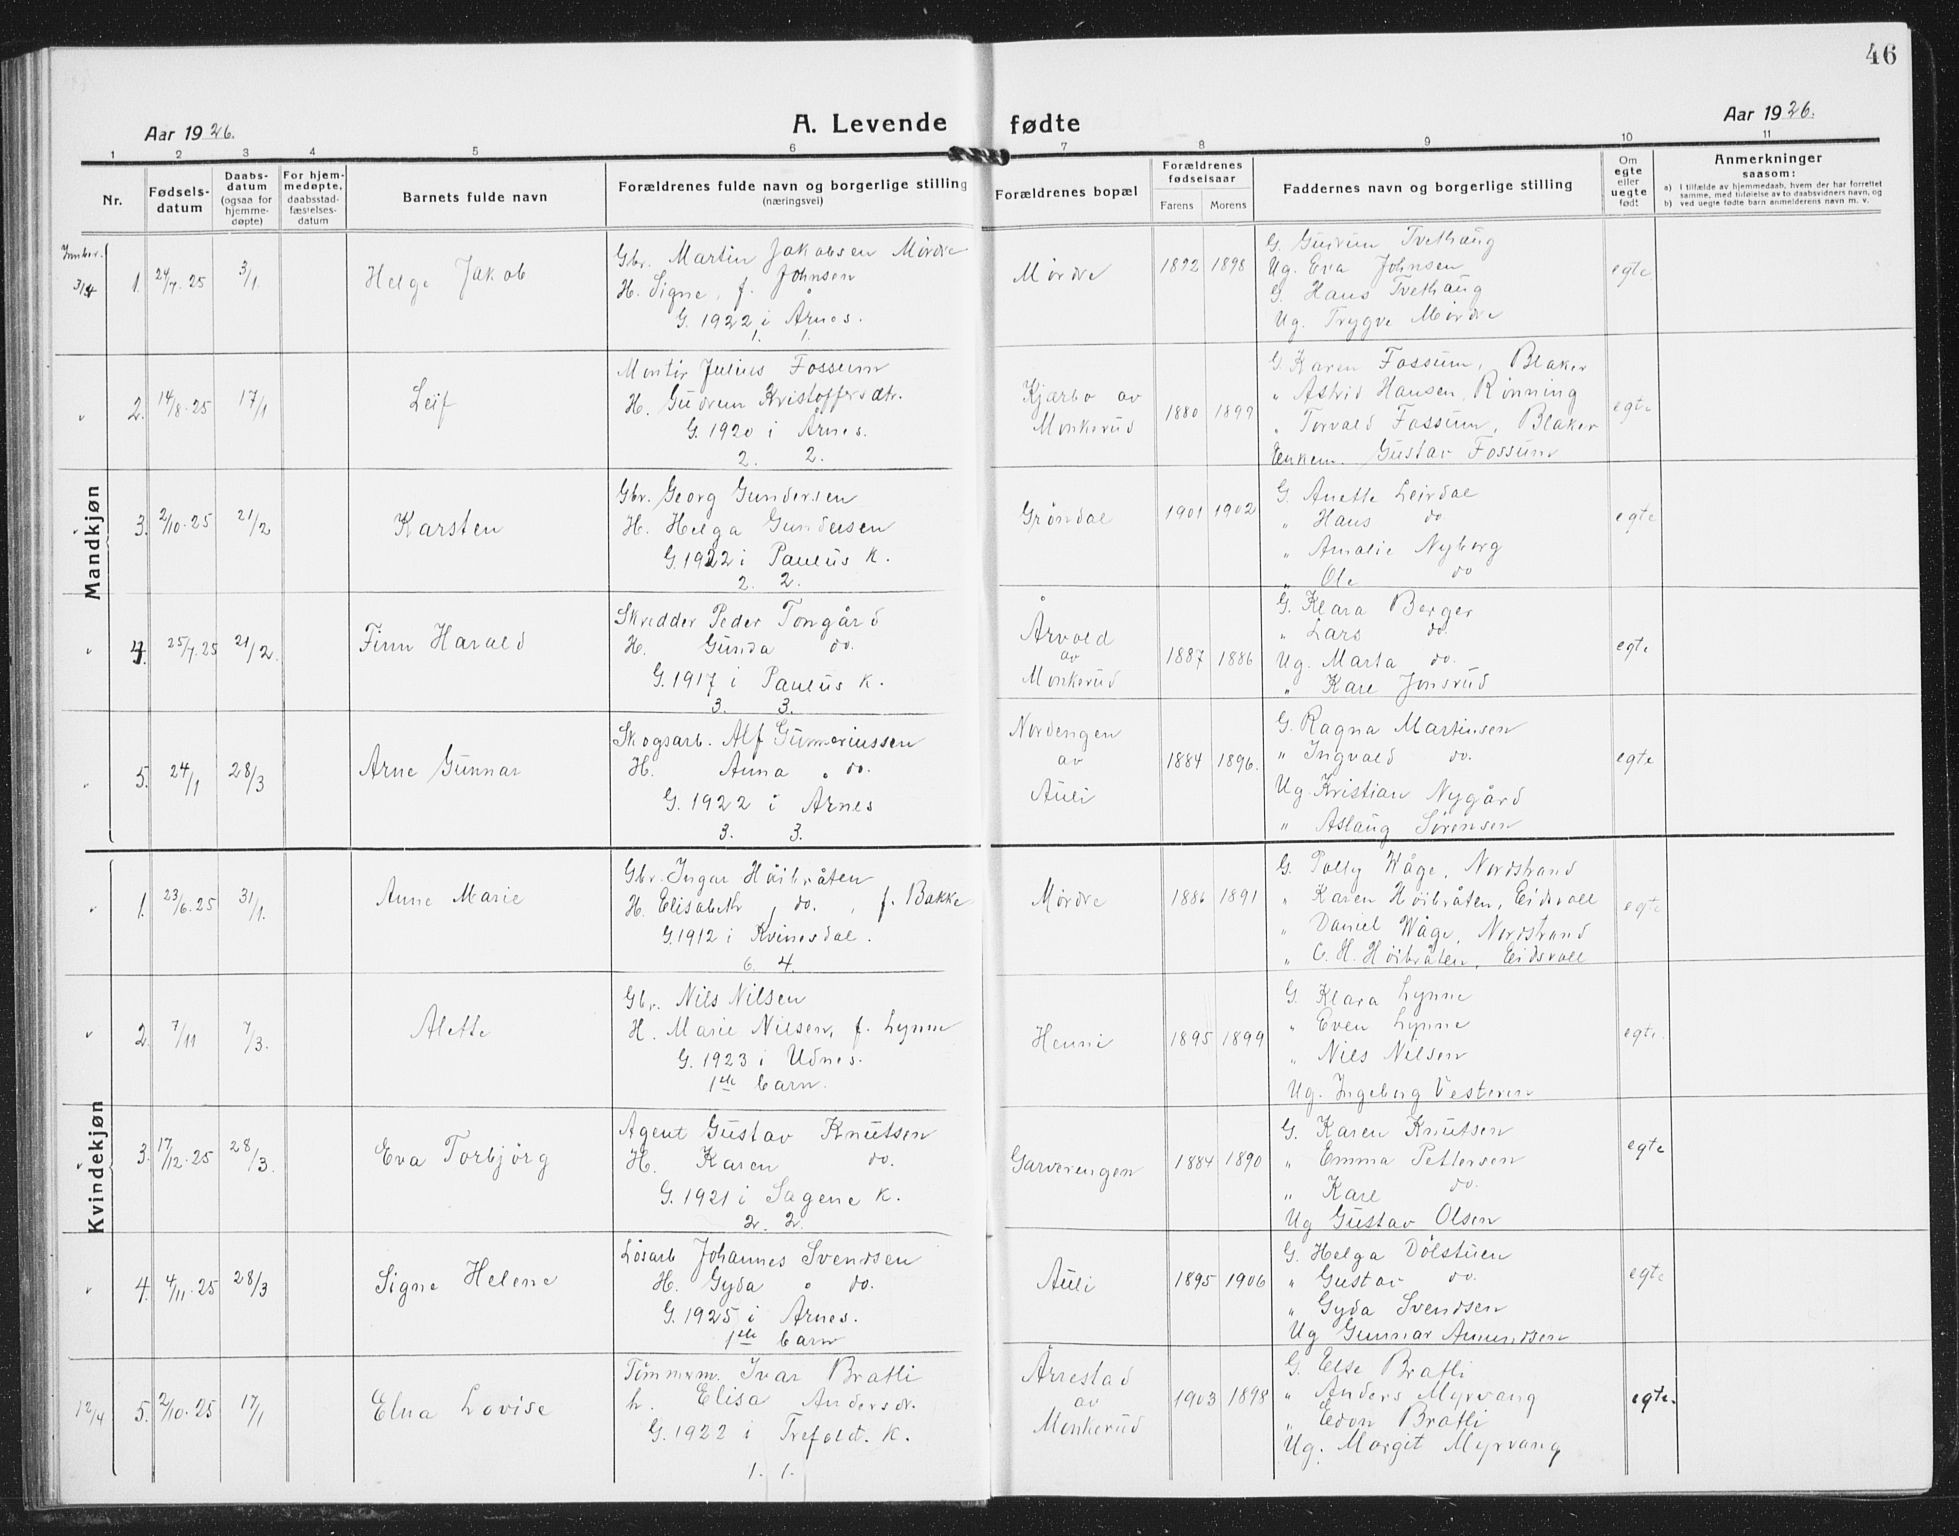 46
Aar 1926.
A. Levende fødte
Aar 1926.
1 2 3 4 5 6 7 8 9 10 11
Nr.
Fødselsdatum
Daabsdatum (ogsaa for hjemmedøpte)
For hjemmedøpte, daabsstadfæstelsesdatum
Barnets fulde navn
Forældrenes fulde navn og borgerlige stilling (næringsvei)
Forældrenes bopæl
Forældrenes fødselsaar
Farens Morens
Faddernes navn og borgerlige stilling
Om egte eller uegte født
Anmerkninger saasom:
a) I tilfælde av hjemmedaab, hvem der har forrettet samme, med tilføielse av to daabsvidners navn, og
b) ved uegte fødte barn anmelderens navn m. v.
Mandkjøn
Innber. 3/4
1. 24/7.25 3/1.
Helge Jakob
Gbr. Martin Jakobsen Mørdre
H. Signe, f. Johnsen
G. 1922 i Årnes.
1. 1.
Mørdre
1892 1898
G. Gudrun Tvethaug
Ug. Eva Johnsen
G. Hans Tvethaug
Ug. Trygve Mørdre
egte
" 2. 14/8.25 17/1
Leif
Montør Julius Fossum
H. Gudrun Kristoffersdtr.
G. 1920 i Årnes.
2. 2.
Kjærbo av
Monkerud
1880 1899
G. Karen Fossum, Blaker
" Astrid Hansen, Rønning
" Torvald Fossum, Blaker
Enkem. Gustav Fossum
egte
" 3. 2/10.25 21/2
Karsten
Gbr. Georg Gundersen
H. Helga Gundersen
G. 1922 i Paulus k.
2. 2.
Grøndal
1901 1902
G. Anette Leirdal
" Hans do
" Amalie Nyborg
" Ole do
egte
" 4. 25/7.25 21/2.
Finn Harald
Skredder Peder Tongård
H. Gunda do.
G. 1917 i Paulus k.
3. 3.
Årvold
av
Monkerud
1887 1886
G. Klara Berger
" Lars do.
Ug. Marta do.
" Kare Jonsrud
egte
" 5. 24/1 28/3
Arne Gunnar
Skogsarb. Alf Gumeriussen
H. Anna " do.
G. 1922 i Årnes
3. 3.
Nordengen
av
Auli
1884 1896.
G. Ragna Martinsen
" Ingvald do.
Ug. Kristian Nygård
" Aslaug Sørensen
egte
Kvindekjøn
" 1. 23/6.25 31/1.
Anne Marie
Gbr. Ingar Høibråten
H. Elisabeth, do., f. Bakke
G. 1912 i Kvinesdal.
6. 4.
Mørdre
1886 1891
G. Polly Wåge, Nordstrand
" Karen Høibråten, Eidsvoll
" Daniel Wåge, Nordstrand
" C. H. Høibråten, Eidsvoll
egte
" 2. 7/11 7/3.
Alette
Gbr. Nils Nilsen
H. Marie Nilsen, f. Lynne
G. 1923 i Udnes.
1ste barn.
Henni
1895 1899
G. Klara Lynne
" Even Lynne
" Nils Nilsen
Ug. Ingeborg Vesteren
egte.
" 3. 17/12.25 28/3.
Eva Torbjørg
Agent Gustav Knutsen
H. Karen do.
G. 1921 i Sagene k.
2. 2.
Garverengen
1884 1890
G. Karen Knutsen
" Emma Pettersen
" Kare do.
Ug Gustav Olsen
egte
" 4. 4/11.25 28/3
Signe Helene
Løsarb Johannes Svendsen
H. Gyda " do.
G. 1925 i Årnes.
1ste barn
Auli
1895 1906
G. Helga Dølstuen
" Gustav do.
" Gyda Svendsen
Ug Gunnar Amundsen
egte
12/4 5. 2/10.25 17/1
Elna Lovise
Tømmerm. Ivar Bratli
h. Elisa Andersdr.
G. 1922 i Trefold. K.
1. 1.
Årrestad
av
Monkerud
1903 1898
G. Else Bratli
" Anders Myrvang
" Edon Bratli
Ug. Margit Myrvang
egte.